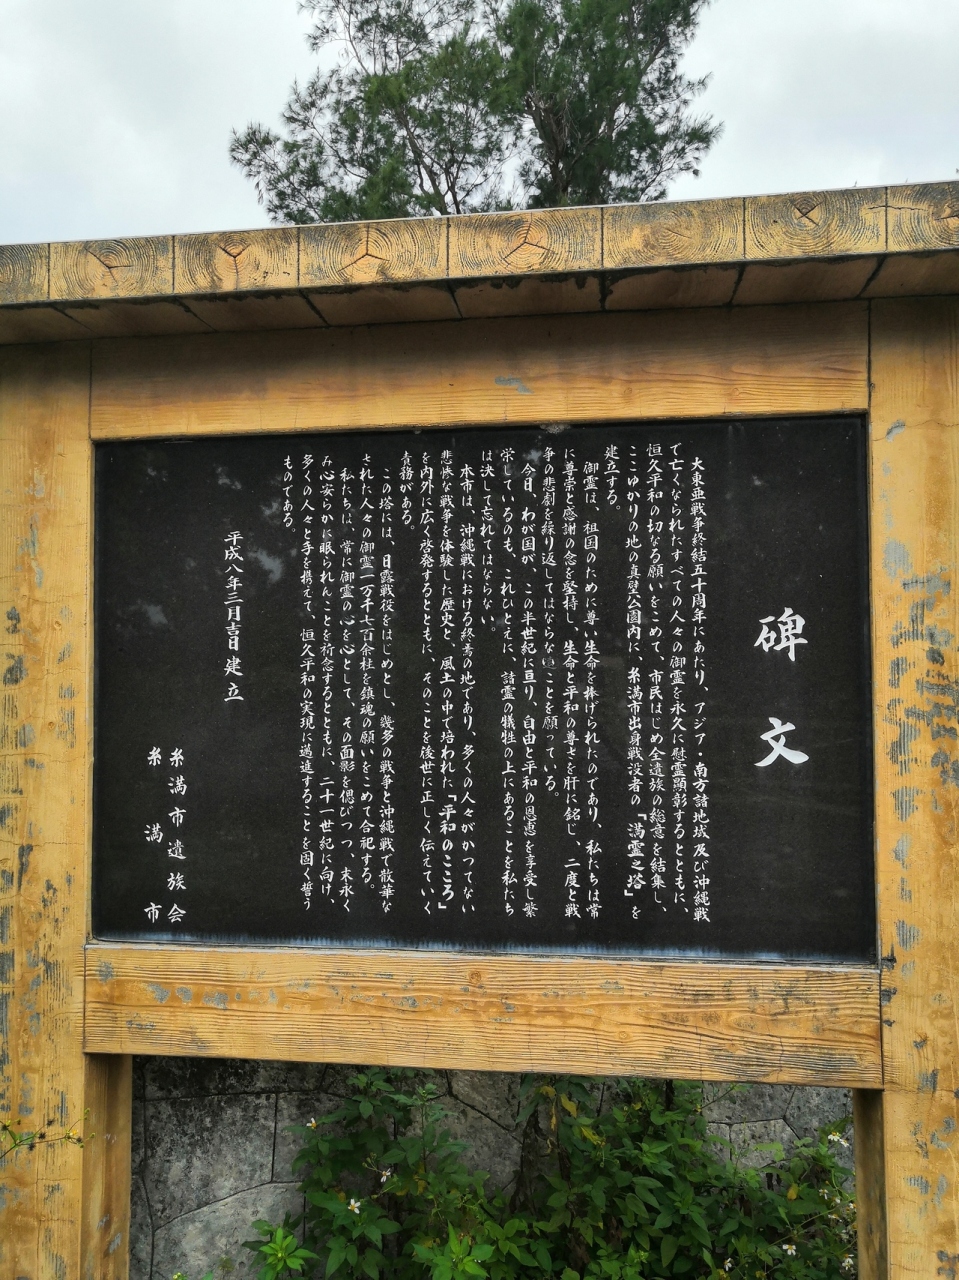 碑文
大東亜戦争終結五十周年にあたり、アジア・南方諸地域及び沖縄戦
で亡くなられたすべての人々の御霊を永久に慰霊顕彰するとともに、
恒久平和の切なる願いをこめて、市民はじめ全遺族の総意を結集し、
ここゆかりの地の真壁公園内に、糸満市出身戦没者の「満霊之塔」を
建立する。
御霊は、祖国のために尊い生命を捧げられたのであり、私たちは常
に尊崇と感謝の念を堅持し、生命と平和の尊さを肝に銘じ、二度と戦
争の悲劇を繰り返してはならないことを願っている。
今日、わが国が、この半世紀に亘り、自由と平和の恩恵を享受し繁
栄しているのも、これひとえに、諸霊の犠牲の上にあることを私たち
は決して忘れてはならない。
本市は、沖縄戦における終焉の地であり、多くの人々がかつてない
悲惨な戦争を体験した歴史と、風土の中で培われた「平和のこころ」
を内外に広く啓発するとともに、そのことを後世に正しく伝えていく
責務がある。
この塔には、日露戦役をはじめとし、幾多の戦争と沖縄戦で散華な
された人々の御霊一万千七百余柱を鎮魂の願いをこめて合祀する。
私たちは、常に御霊の心を心として、その面影を偲びつつ、末永く
み心安らかに眠られんことを祈念するとともに、二十一世紀に向け、
多くの人々と手を携えて、恒久平和の実現に邁進することを固く誓う
ものである。
平成八年三月吉日建立
糸満市遺族会
糸満市